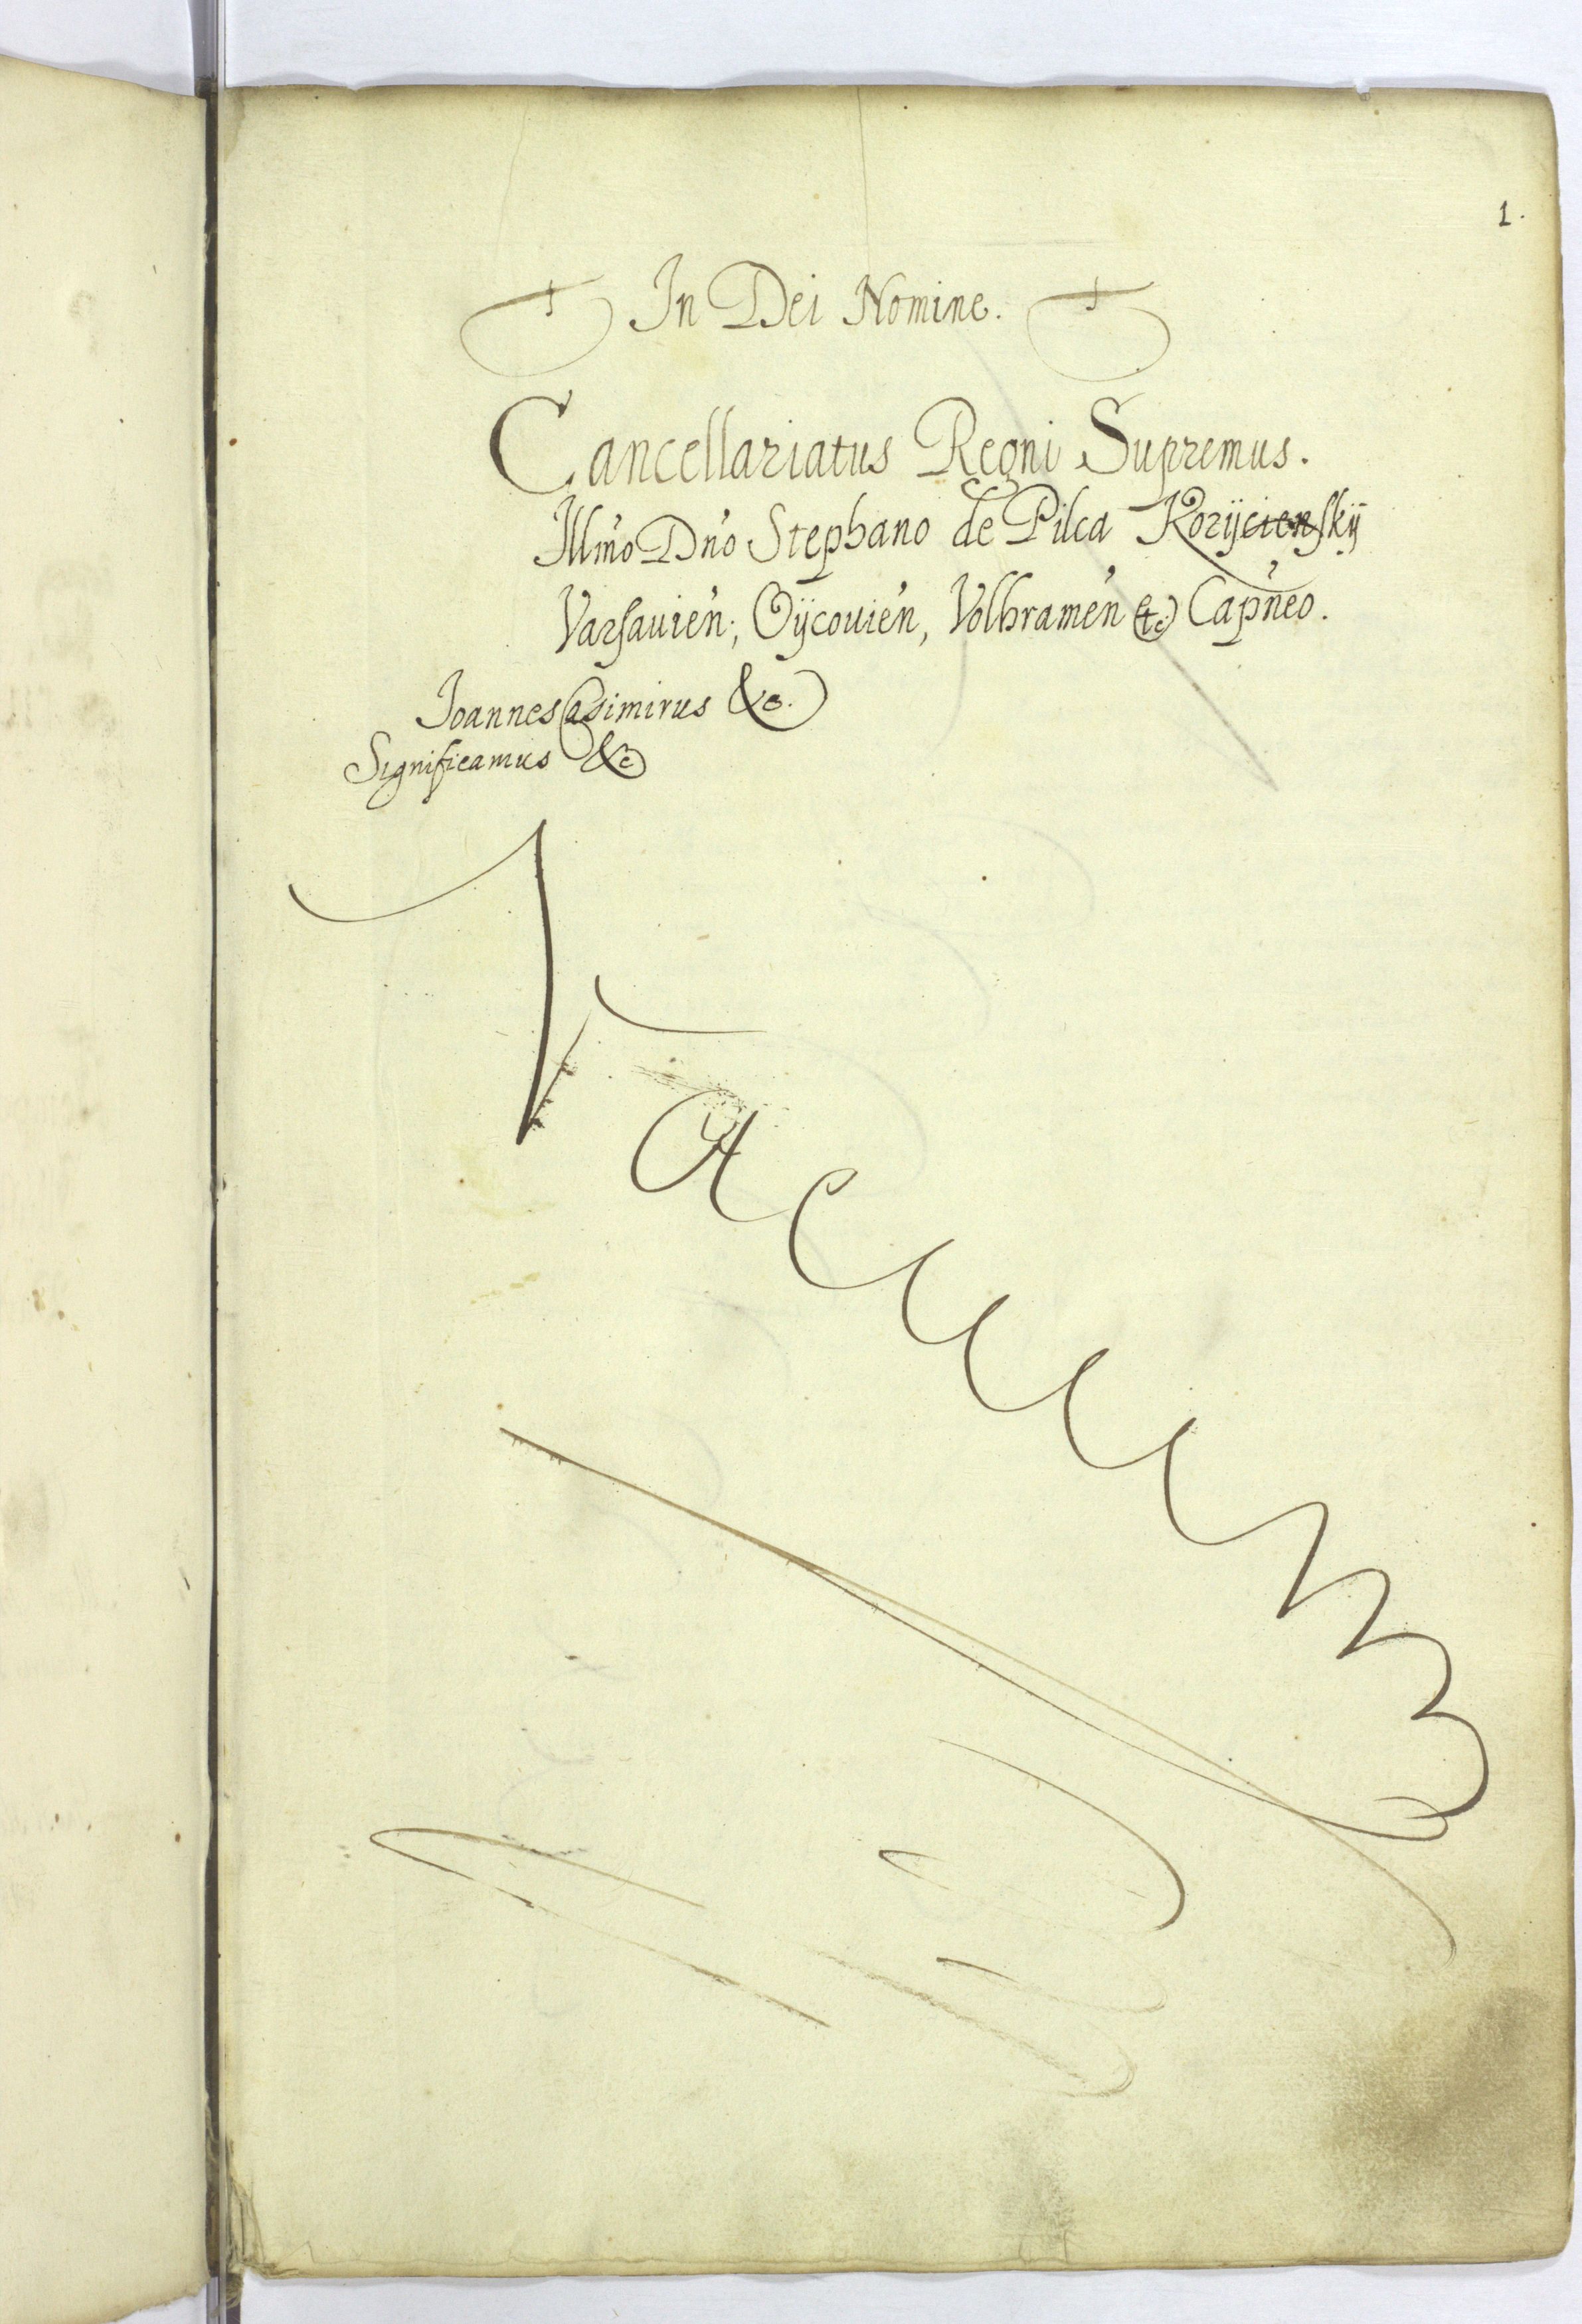 1.
In Dei Nomine.
Cancellariatus Regni Supremus.
Illmo Dno Stephano de Pilca Korÿcienskÿ
Varsauien; Oÿcouien, Volbramen etc Capneo.
Joannes Casimirus &c.
Significamus &c
Vacuum